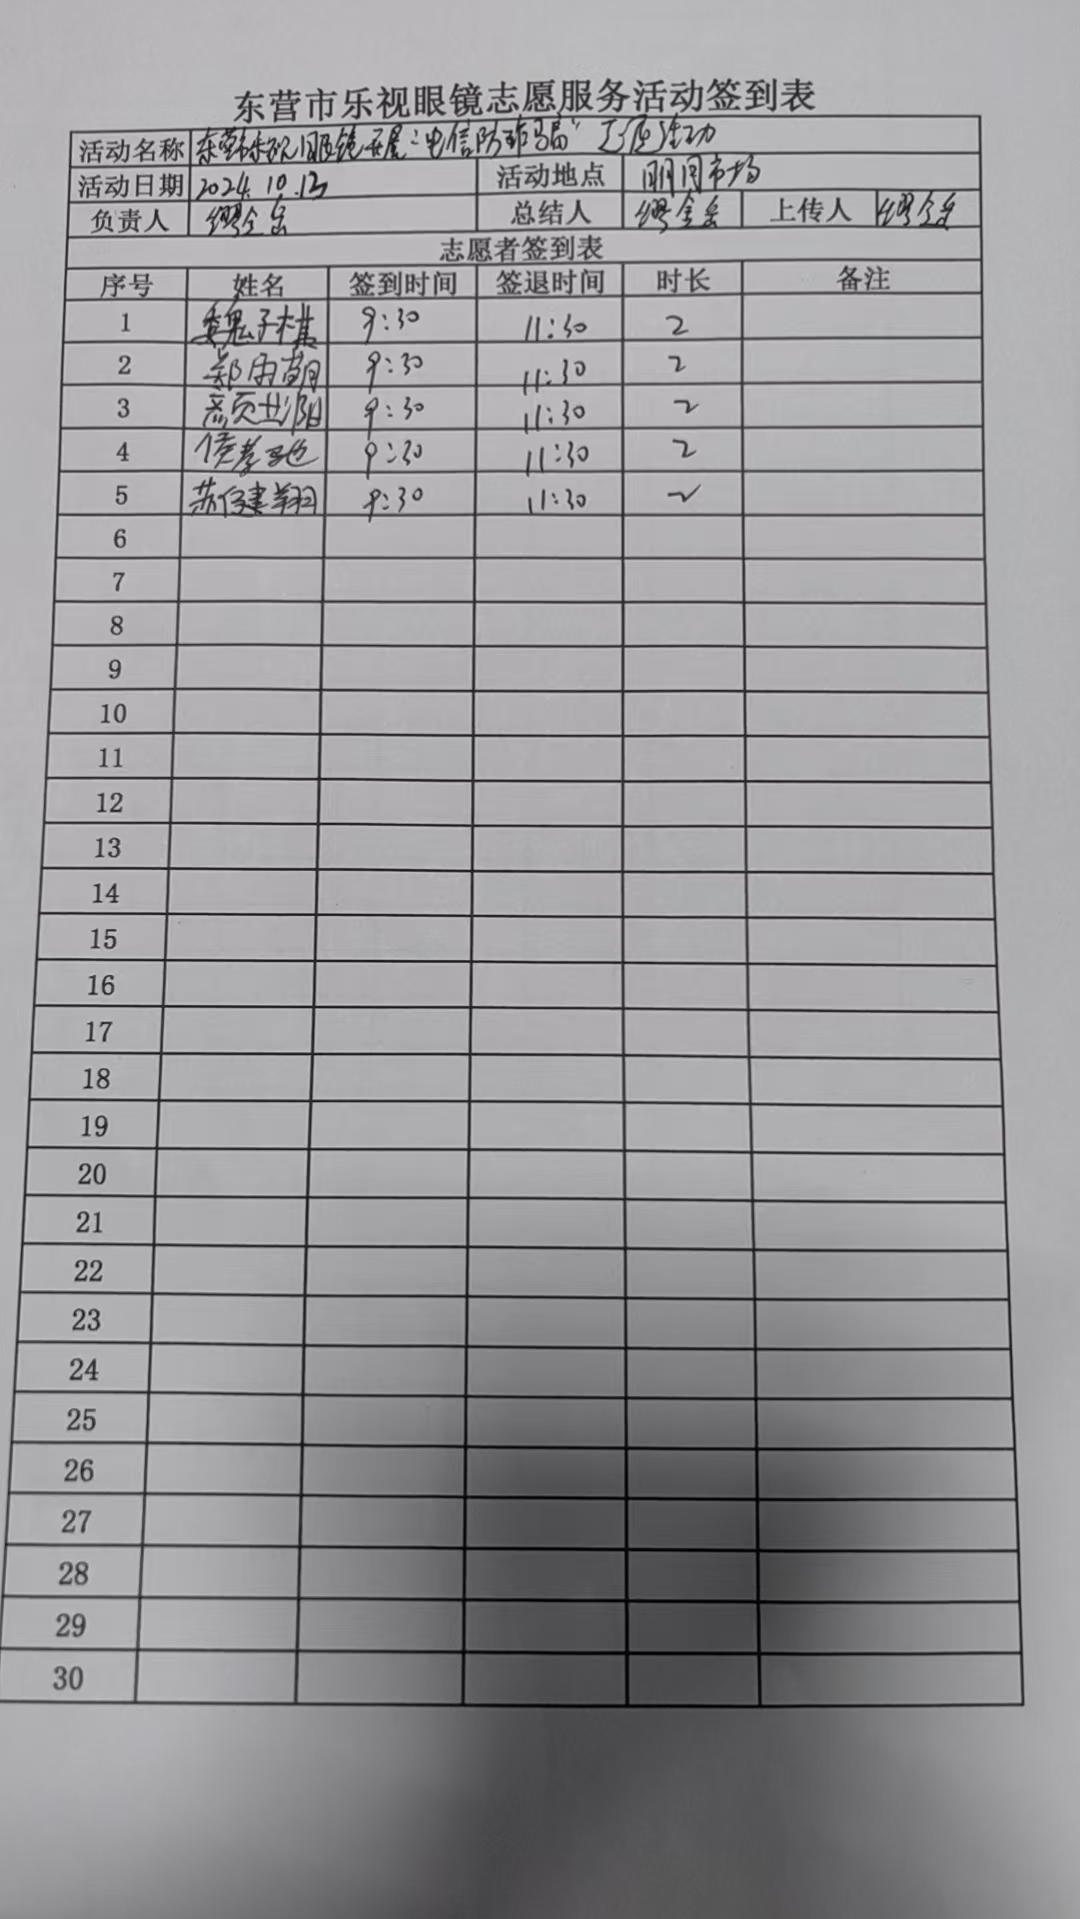 东营市乐视眼镜志愿服务活动签到表
活动名称 东营市乐视眼镜开展“电信防诈骗”志愿活动
活动日期 2024.10.13 活动地点 明月市场
负责人 缪金岳 总结人 缪金岳 上传人 缪金岳
志愿者签到表
序号 姓名 签到时间 签退时间 时长 备注
1 魏子棋 9:30 11:30 2
2 郑雨萌 9:30 11:30 2
3 9:30 11:30 2
4 9:30 11:30 2
5 苏健翔 9:30 11:30 2
6
7
8
9
10
11
12
13
14
15
16
17
18
19
20
21
22
23
24
25
26
27
28
29
30